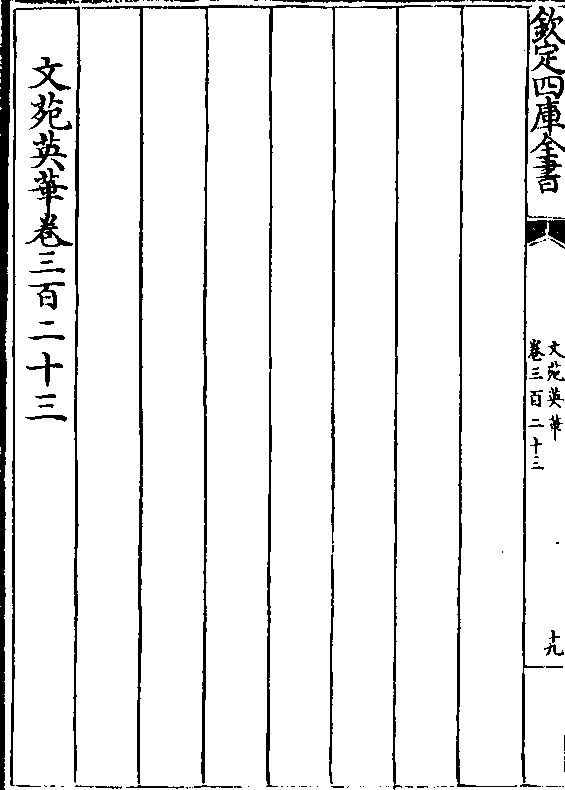 欽定四庫全書
文苑英華
卷三百二十三
十九
文苑英華卷三百二十三